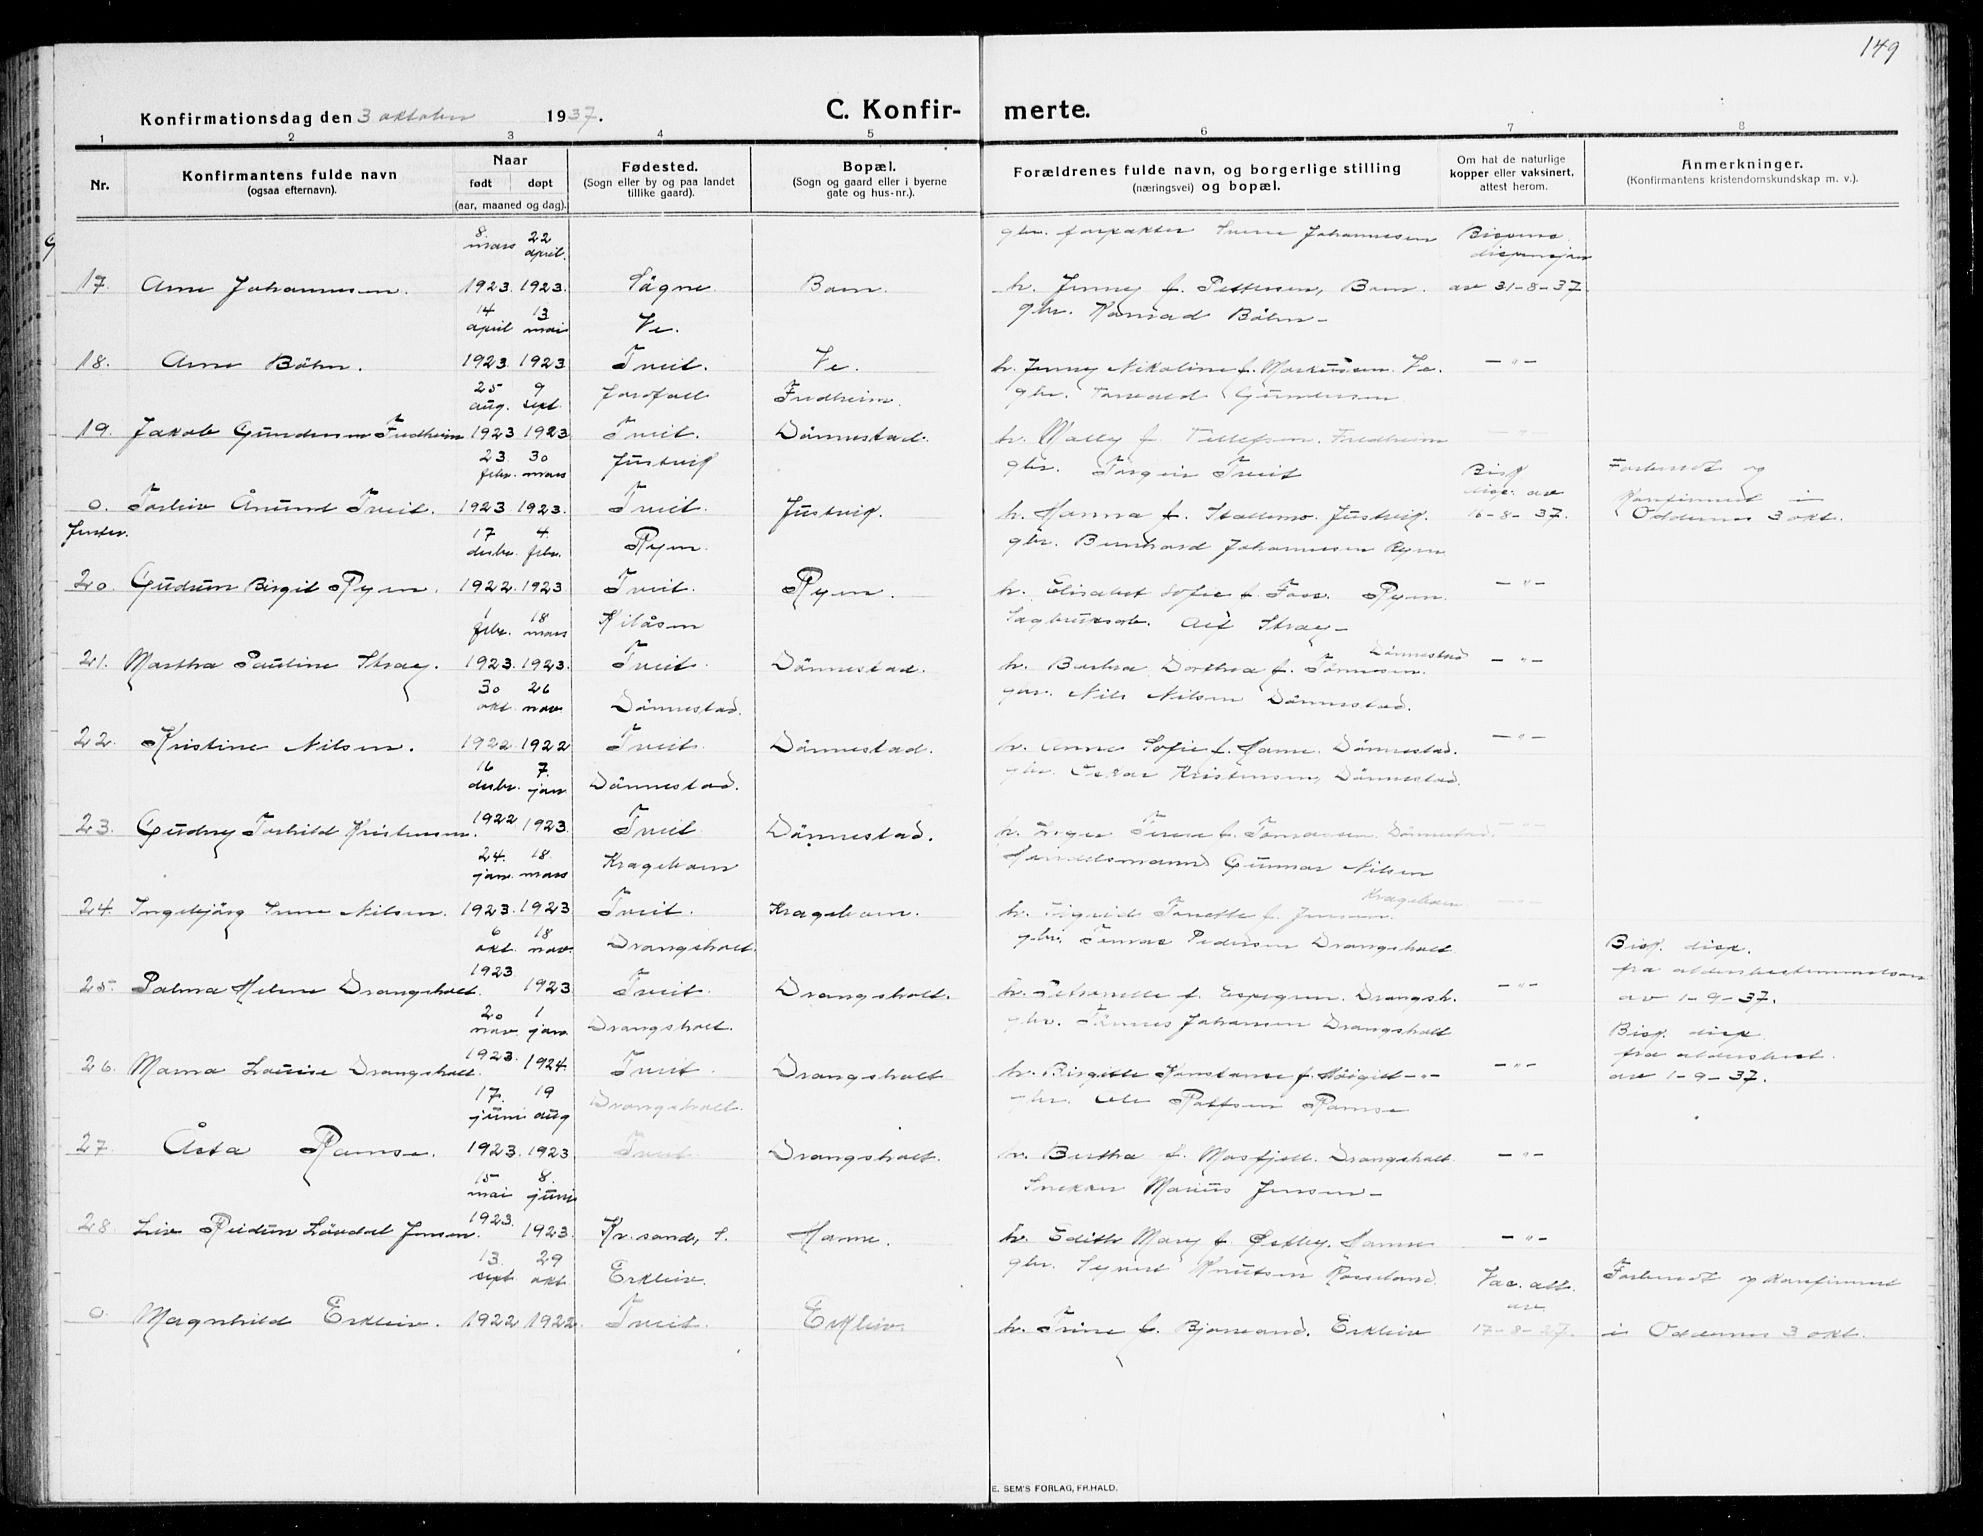 149
Konfirmationsdag den 3 oktober 1937.
C. Konfirmerte.
1 2 3 4 5 6 7 8
Nr.
Konfirmantens fulde navn
(ogsaa efternavn).
Naar
født døpt
(aar, maaned og dag).
Fødested.
(Sogn eller by og paa landet
tillike gaard).
Bopæl.
(Sogn og gaard eller i byerne
gate og hus-nr.).
Forældrenes fulde navn, og borgerlige stilling
(næringsvei) og bopæl.
Om hat de naturlige
kopper eller vaksinert,
attest herom.
Anmerkninger.
(Konfirmantens kristendomskundskap m. v.).
8. mars 22 april. gbr. forpakter Johannesen
17. Arne Johannesen. 1923. 1923. Søgne. Boen. h. Jenny f. Pettersen, Boen. av 31-8-37
14 april 13 mai Ve. gbr. Konrad Böhn -
18. Arne Böhn. 1923. 1923 Tveit. Ve. h. Jenny Nikoline f. Markussen. Ve. - " -
25 aug. 9 sept. Fredheim. gbr. Torvald Gundersen
19. Jakob Gundersen Fredheim 1923 1923 Tveit. Dönnestad. h. Wally f. Tellefsen. Fredheim - " -
23 febr. 30 mars Justvik gbr. Torgeir Tveit Bisk Forberedt og
0. Torleiv Ånund Tveit. 1923 1923. Tveit. Justvik. h. Hanna f. Stallemo. Justvik. disp. av 16-8-37. Konfirmert i Oddernes 3 okt.
17 desbr. 4. febr. Ryen. gbr. Bernhard Johannesen Ryen
20. Gudrun Birgit Ryen. 1922. 1923. Tveit. Ryen. h. Elisabet Sofie f. Foss. Ryen. - " -
1 febr. 18 mars Kilåsen Sagbruksarb. Alf Stray -
21. Martha Pauline Stray. 1923. 1923. Tveit. Dönnestad. h. Berthea Dorthea f. Tönnesen. Dönnestad - " -
30 okt. 26 nov. Dönnestad. gbr. Nils Nilsen Dönnestad.
22. Kristine Nilsen. 1922. 1922 Tveit. Dönnestad. h. Anne Sofie f. Hamre. Dönnestad. - " -
16 desbr. 7. jan. Dönnestad. gbr. Oskar Kristensen, Dönnestad.
23. Gudny Torhild Kristensen. 1922 1923. Tveit Dönnestad. h. Inger Tirine f. Tomassen. Dönnestad. - " -
24. jan. 18. mars Krageboen Handelsmann Gunnar Nilsen
24. Ingebjørg Irene Nilsen. 1923. 1923 Tveit. Krageboen. h. Sigrid Tonette f. Jensen. Krageboen. - " -
6 okt. 18 nov. Drangsholt. gbr. Tomas Pedersen Drangsholt Bisk. disp.
25. Palma Helene Drangsholt. 1923 1923 Tveit. Drangsholt. h. Petronelle f. Espegren. Drangsh. - " - fra aldersbestemmelsen av 1-9-37.
20 nov. 1 jan. Drangsholt. gbr. Tönnes Johansen Drangsholt Bisk. disp
26. Marna Louise Drangsholt. 1923. 1924. Tveit. Drangsholt h. Birgitte Konstanse f. - " - - " - fra aldersbest. av 1-9-37.
17. juni 19 aug Drangsholt. gbr. Ole Rolfsen Ramse
27. Åsta Ramse. 1923. 1923 Tveit Drangsholt. h. Bertha f. Mosfjell. Drangsholt - " -
15 mai 8. juni Snekker Marius Jensen -
28. Liv Reidun Lövdal Jensen. 1923. 1923. Kr.sand, S. Hamre. h. Edith Mary f. Østby. Hamre - " -
13. sept. 29 okt. Erkleiv. gbr. Syvert Knutsen Rosseland. Vac. att. Forberedt og konfirmert
0. Magnhild Erkleiv. 1922 1922. Tveit. Erkleiv. h. Trine f. Bjorvand. Erkleiv av 17-8-27. i Oddernes 3 okt.
E. SEM'S FORLAG, FR.HALD.